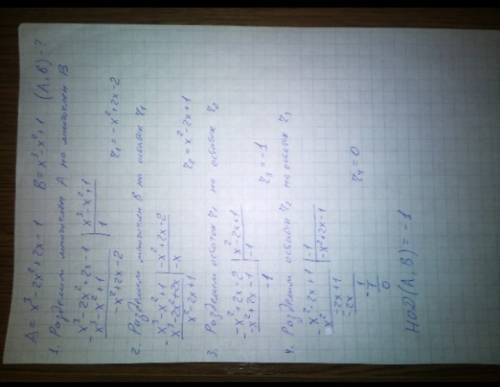 A = x³-2x²+2x-1  B = x³-x²+1  (A,B)-?
1. Разделим многочлен A на многочлен B
-x³-2x²+2x-1 | x³-x²+1
x³-x²+1 | 1
-x²+2x-2
r₁=-x²+2x-2
2. Разделим многочлен B на остаток r₁
-x³-x²+1 | -x²+2x-2
x³-2x²+2x | -x
x²-2x+1
r₂=x²-2x+1
3. Разделим остаток r₁ на остаток r₂
-x²+2x-2 | x²-2x+1
-x²+2x-1 | -1
-1
r₃=-1
4. Разделим остаток r₂ на остаток r₃
-x²-2x+1 | -1
x² | -x²+2x-1
-2x+1
-2x
1
1
0
r₄=0
НОД(A,B)=-1